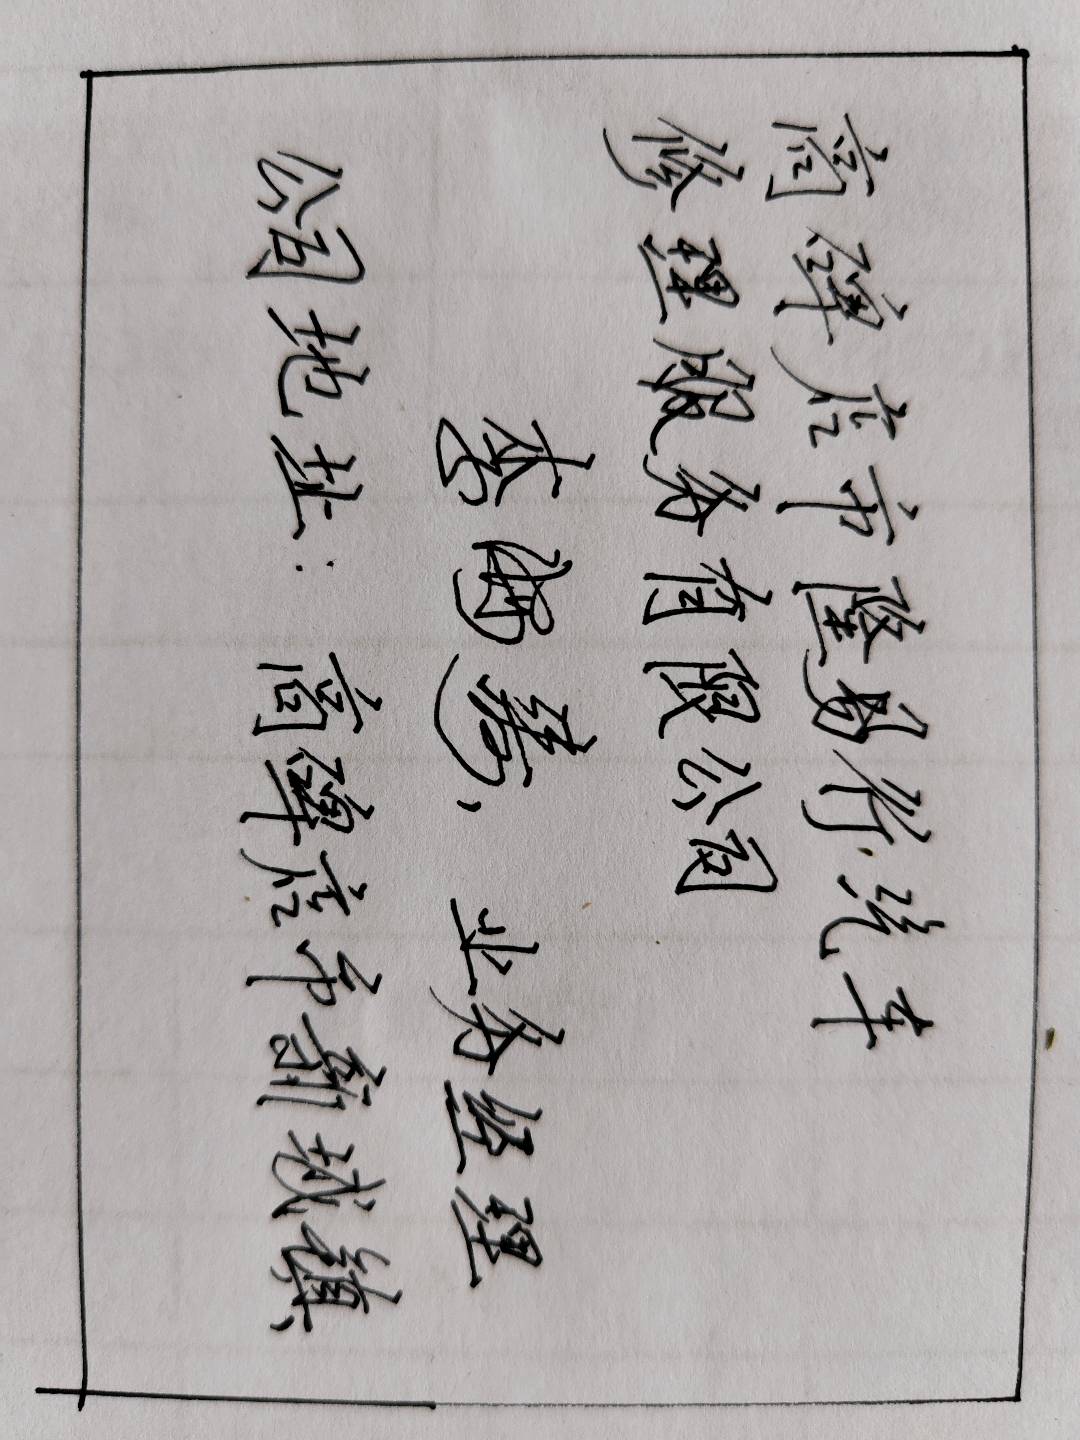 高碑店市隆易行汽车
修理服务有限公司
李，业务经理
公司地址：高碑店市新城镇